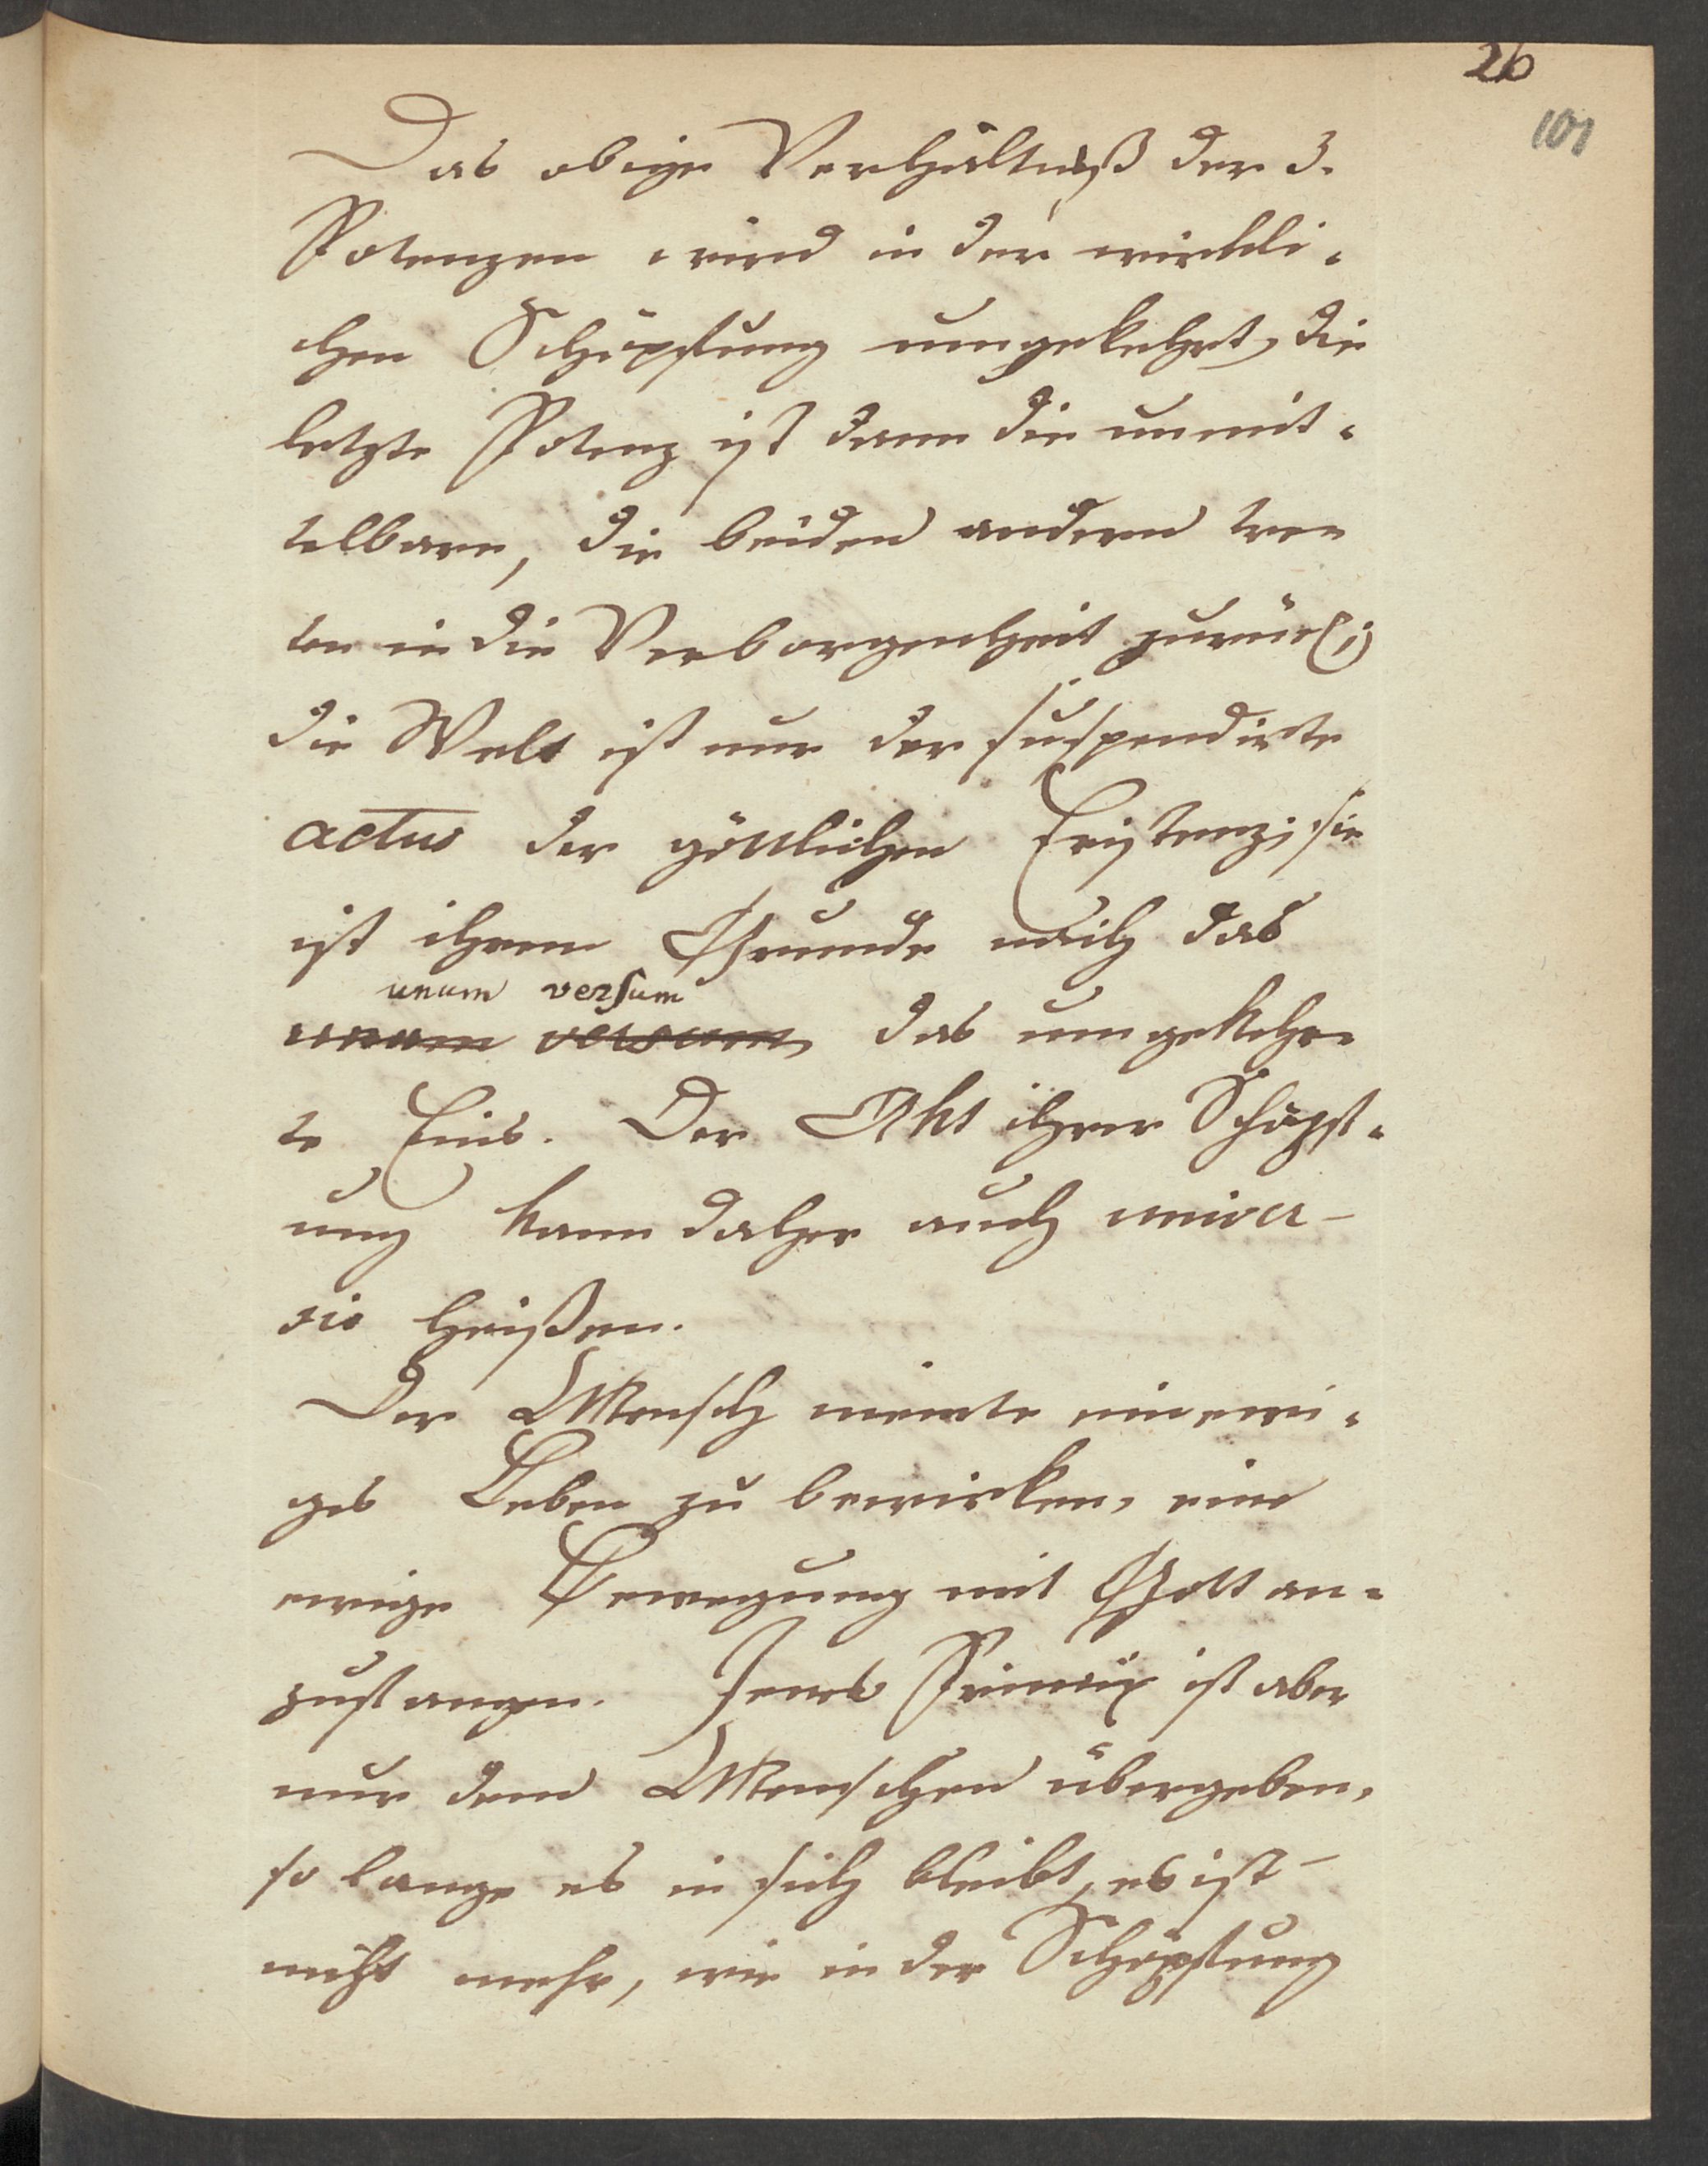 26
101
Das obige Verhältniß der 3.
Potenzen wird in der wirkli-
chen Schöpfung umgekehrt, die
letzte Potenz ist dann die unmit-
telbare, die beiden andern tre-
ten in die Verborgenheit zurück(;)
die Welt ist nur der suspendirte
actus der göttlichen Existenz; sie
ist ihrem Grunde nach das
unum versum
unum versum, das umgekehr-
te Eins. Der Akt ihrer Schöpf-
ung kann daher auch univer-
sio heißen.
Der Mensch meinte ein ewi-
ges Leben zu bewirken, eine
ewige Bewegung mit Gott an-
zufangen. Jenes Princip ist aber
nur dem Menschen übergeben,
so lange es in sich bleibt, es ist
nicht mehr, wie in der Schöpfung